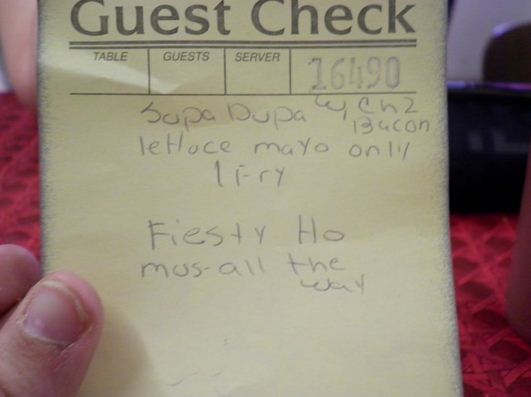 Guest Check
TABLE GUESTS SERVER 16490
Supa Dupa w/ Chz
Bacon
lettuce mayo only
1 Fry
Fiesty Ho
mus-all the
way